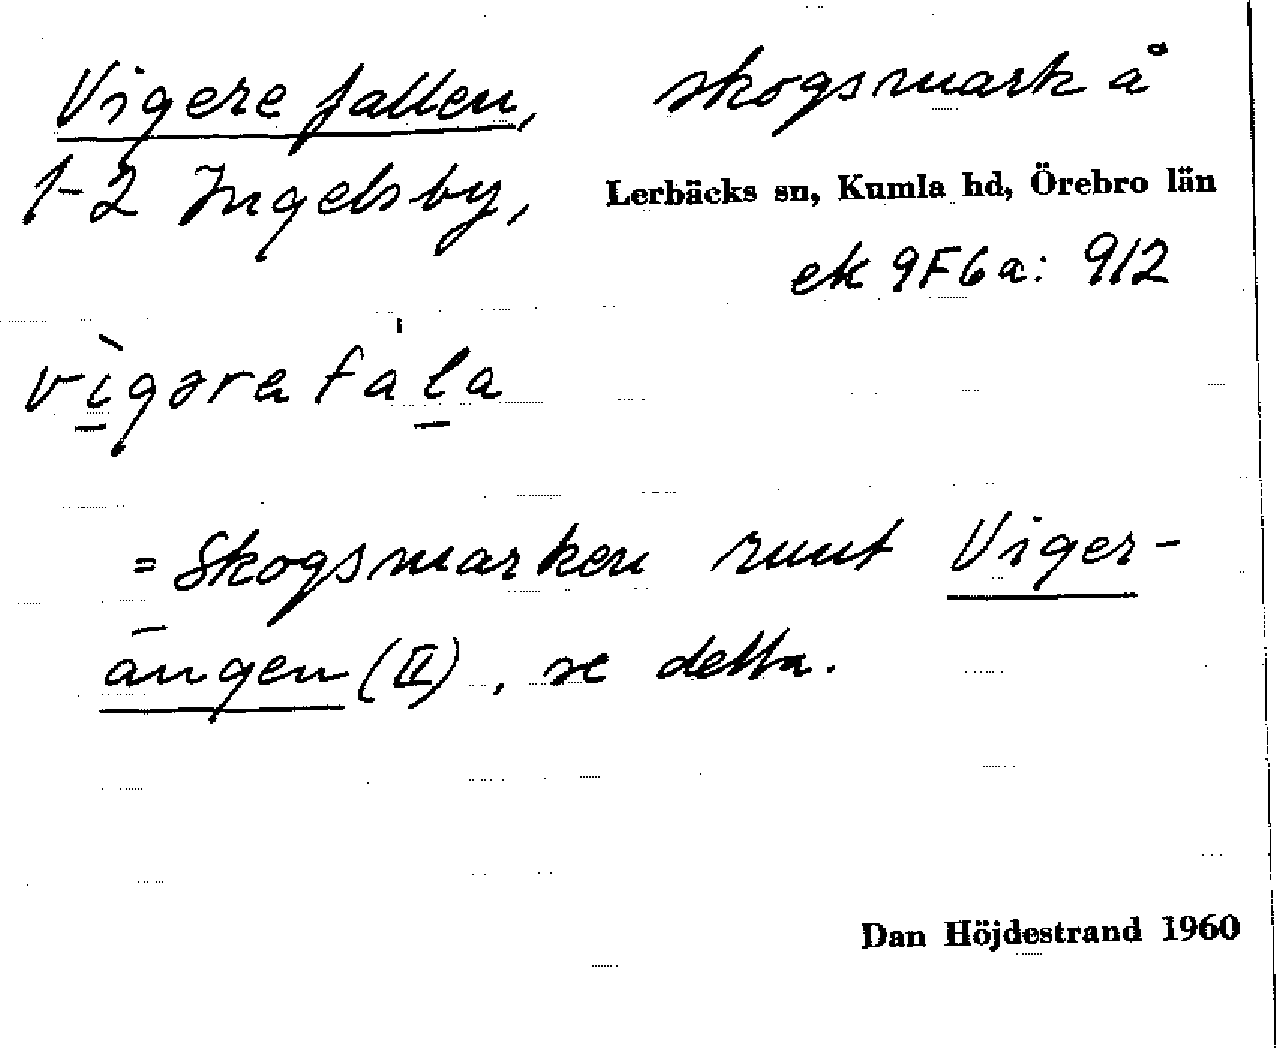 Vigere fallen, skogsmark å
1-2 Ingelsby, Lerbäcks sn, Kumla hd, Örebro län
ek 9F6a: 912
vìgəra fala
= Skogsmarken runt Viger-
ängen (II), se detta.
Dan Höjdestrand 1960